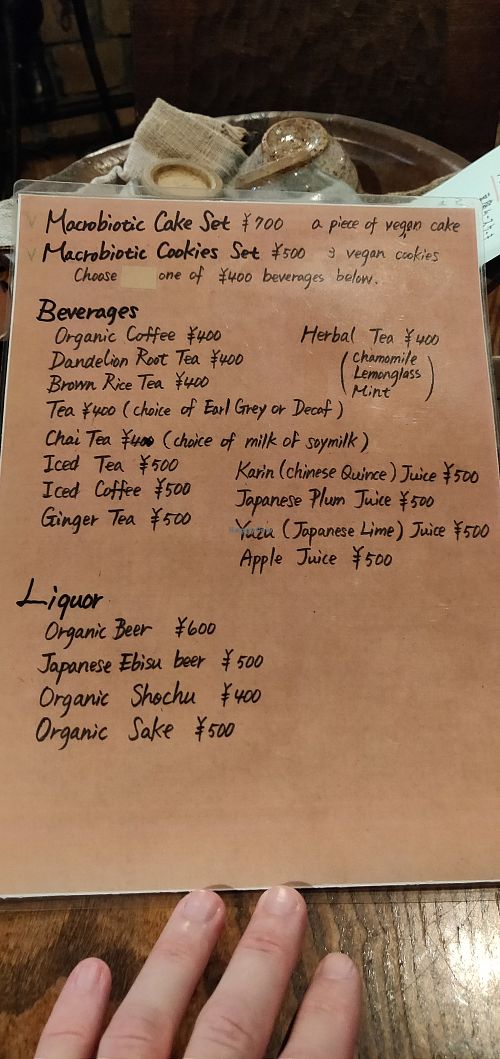 V Macrobiotic Cake Set ¥700 a piece of vegan cake
V Macrobiotic Cookies Set ¥500 3 vegan cookies
Choose one of ¥400 beverages below.
Beverages
Organic Coffee ¥400
Dandelion Root Tea ¥400
Brown Rice Tea ¥400
Herbal Tea ¥400
(Chamomile
Lemonglass
Mint)
Tea ¥400 (choice of Earl Grey or Decaf)
Chai Tea ¥400 (choice of milk of soymilk)
Iced Tea ¥500
Iced Coffee ¥500
Ginger Tea ¥500
Karin (chinese Quince) Juice ¥500
Japanese Plum Juice ¥500
Yuzu (Japanese Lime) Juice ¥500
Apple Juice ¥500
Liquor
Organic Beer ¥600
Japanese Ebisu beer ¥500
Organic Shochu ¥400
Organic Sake ¥500